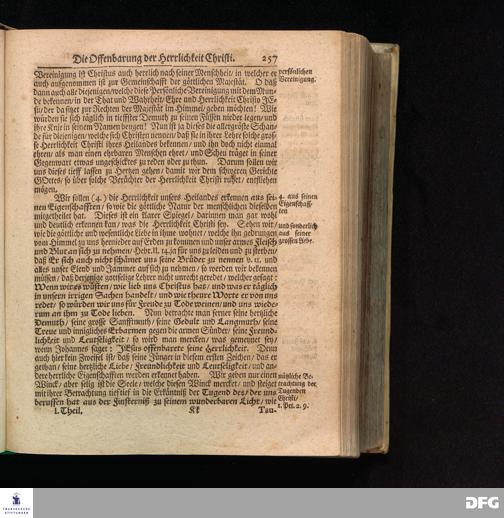 Die Offenbarung der Herrlichkeit Christi. 257
Vereinigung iſt Chriſtus auch herrlich nach ſeiner Menſchheit/ in welcher er
auch aufgenommen iſt zur Gemeinſchafft der göttlichen Majeſtät. O daß
dann auch alle diejenigen/ welche dieſe Perſönliche Vereinigung mit dem Mun-
de bekennen/ in der That und Wahrheit/ Ehre und Herrlichkeit Chriſto JE-
ſu/ der da ſitzet zur Rechten der Majeſtät im Himmel/ geben möchten! Wie
würden ſie ſich täglich in tieffſter Demuth zu ſeinen Füſſen nieder legen/ und
ihre Knie in ſeinem Namen beugen! Nun iſt ja dieſes die allergröſte Schan-
de für diejenigen/ welche ſich Chriſten nennen/ daß ſie in ihrer Lehre ſolche groſ-
ſe Herrlichkeit Chriſti ihres Heilandes bekennen/ und ihn doch nicht einmal
ehren/ als man einen ehrbaren Menſchen ehret/ und Scheu träget in ſeiner
Gegenwart etwas ungeſchicktes zu reden oder zu thun. Darum ſollen wir
uns dieſes tieff laſſen zu Hertzen gehen/ damit wir dem ſchweren Gerichte
GOttes/ ſo über ſolche Verächter der Herrlichkeit Chriſti ruhet/ entfliehen
mögen.
Wir ſollen (4.) die Herrlichkeit unſers Heilandes erkennen aus ſei-
nen Eigenſchafften/ ſo wie die göttliche Natur der menſchlichen dieſelben
mitgetheilet hat. Dieſes iſt ein klarer Spiegel/ darinnen man gar wohl
und deutlich erkennen kan/ was die Herrlichkeit Chriſti ſey. Sehen wir/
wie die göttliche und weſentliche Liebe in ihm wohnet/ welche ihn gedrungen
vom Himmel zu uns hernieder auf Erden zu kommen und unſer armes Fleiſch
und Blut an ſich zu nehmen/ Hebr. II, 14. ja für uns zu leiden und zu ſterben/
daß Er ſich auch nicht ſchämet uns ſeine Brüder zu nennen v. 11. und
alles unſer Elend und Jammer auf ſich zu nehmen/ ſo werden wir bekennen
müſſen/ daß derjenige gottſelige Lehrer nicht unrecht geredet/ welcher geſagt:
Wenn wir es wüſten/ wie lieb uns Chriſtus hat/ und was er täglich
in unſern irrigen Sachen handelt/ und wie theure Worte er von uns
redet/ ſo würden wir uns für Freude zu Tode weinen/ und uns wiede-
rum an ihm zu Tode lieben. Nun betrachte man ferner ſeine hertzliche
Demuth/ ſeine groſſe Sanfftmuth/ ſeine Gedult und Langmuth/ ſeine
Treue und inniglichesErbarmen gegen die armen Sünder/ ſeine Freund-
lichkeit und Leutſeligkeit/ ſo wird man mercken/ was gemeynet ſey/
wenn Johannes ſaget: JEſus offenbarete ſeine Herrlichkeit. Denn
auch hier kein Zweifel iſt/ daß ſeine Jünger in dieſem erſten Zeichen/ das er
gethan/ ſeine hertzliche Liebe/ Freundlichkeit und Leutſeligkeit/ und an-
dere herrliche Eigenſchafften werden erkennet haben. Wir geben nur einen
Winck/ aber ſelig iſt die Seele/ welche dieſen Winck mercket/ und ſteiget
mit ihrer Betrachtung tief tief in die Erkäntniß der Tugend des/ der uns
beruffen hat aus der Finſterniß zu ſeinem wunderbaren Licht/ wie
I. Theil. Kk Tau-
perſönlichen
Vereinigung.
4. aus ſeinen
Eigenſchaff-
ten
und ſonderlich
aus ſeiner
groſſen Liebe.
nützliche Be-
trachtung der
Tugenden
Chriſti/
1. Pet. 2. 9.
FRANCKESCHE
STIFTUNGEN
DFG